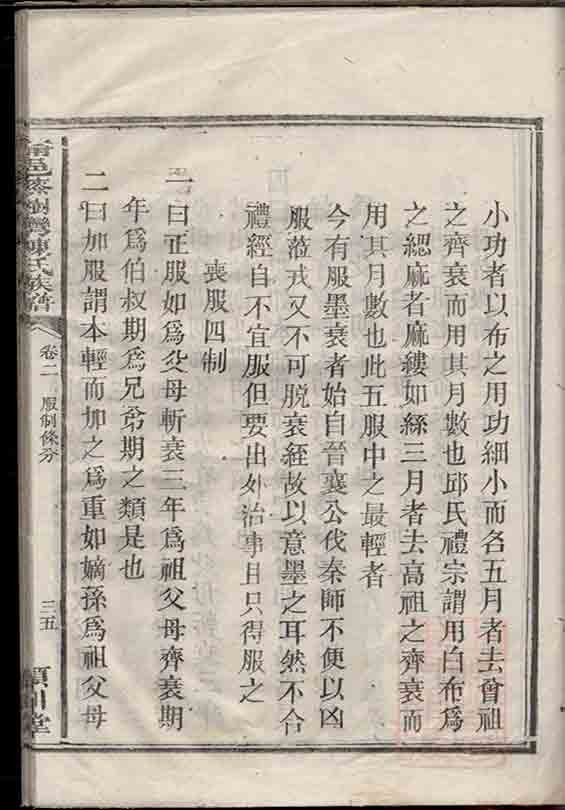 小功者以布之用功細小而名五月者去曾祖
之齊衰而用其月數也邱氏禮宗謂用白布爲
之緦麻者麻縷如絲三月者去高祖之齊衰而
用其月數也此五服中之最輕者
今有服墨衰者始自晉襄公伐秦師不便以凶
服蒞戎又不可脫衰絰故以意墨之耳然不合
禮經自不宜服但要出外治事且只得服之
喪服四制
一曰正服如爲父母斬衰三年爲祖父母齊衰期
年爲伯叔期爲兄弟期之類是也
二曰加服謂本輕而加之爲重如嫡孫爲祖父母
邑 樹灣陳氏族譜
卷二 服制條分
三五
潁川堂